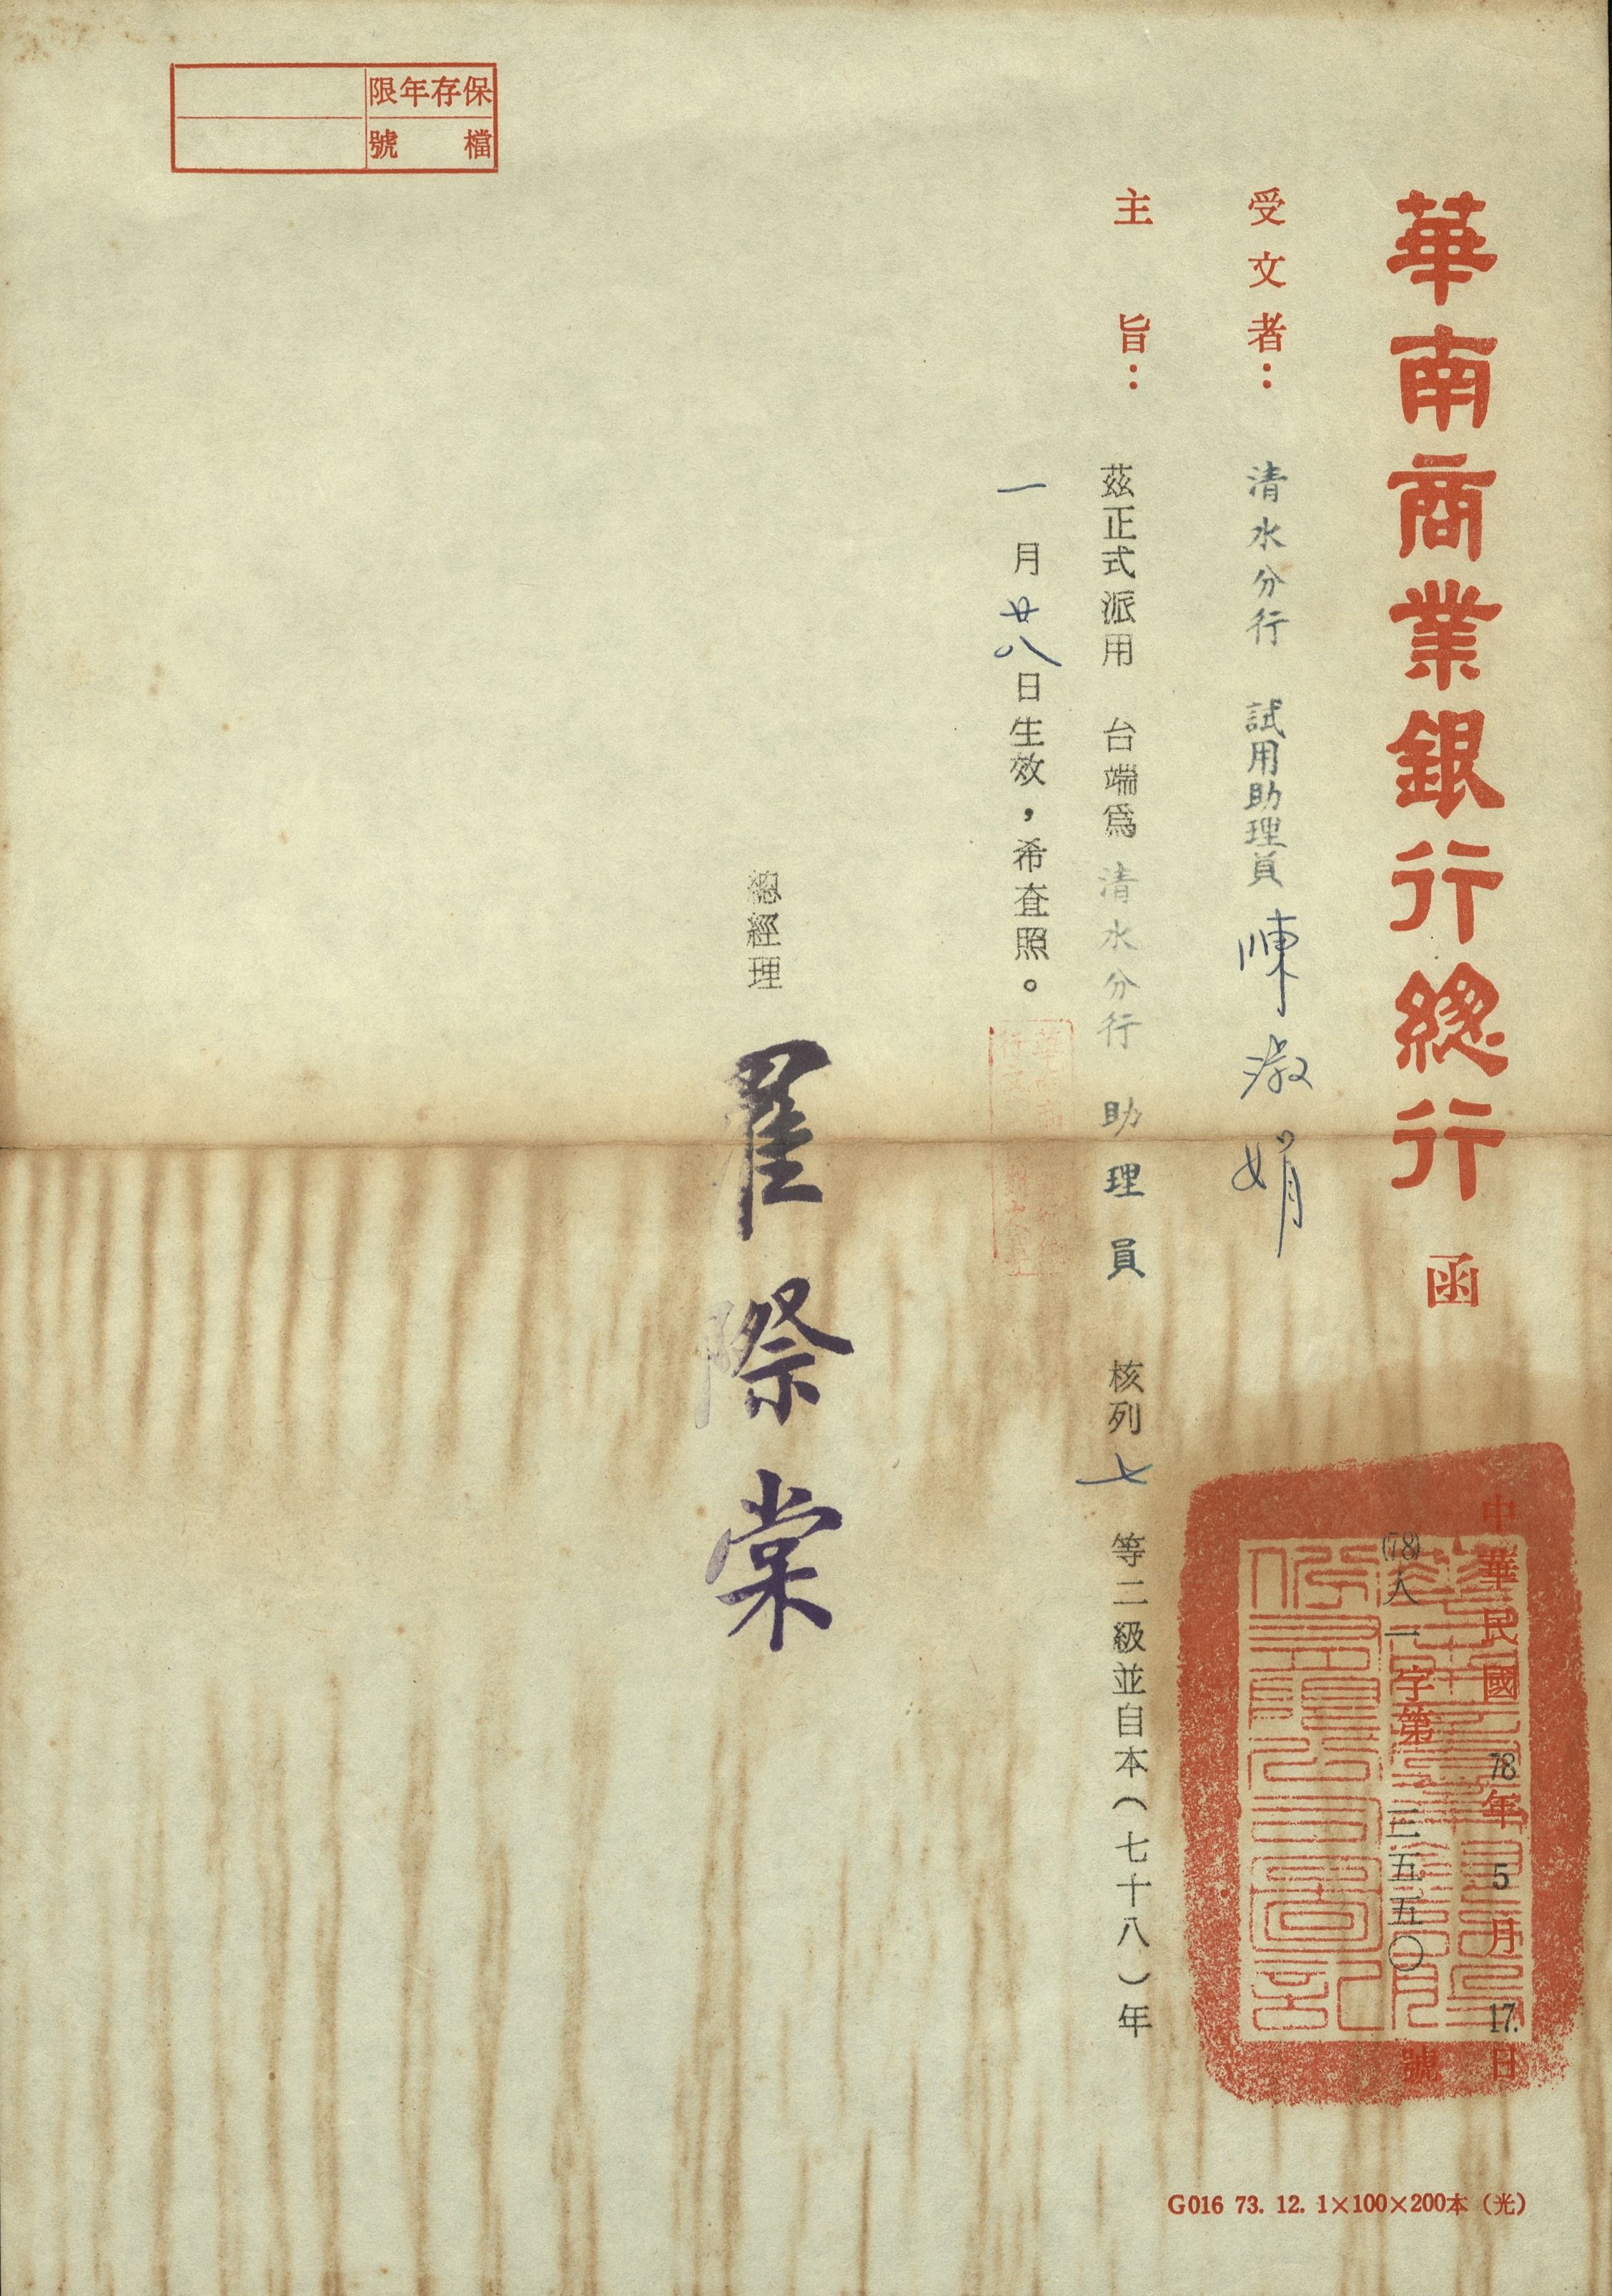 華南商業銀行總行 函
中華民國 78年 5 月 17.日
(78)人一字第 三五五〇 號
受文者：清水分行 試用助理員 陳淑娟
主旨：茲正式派用 台端為 清水分行 助理員 核列 七 等二級並自本（七十八）年
一月廿八日生效，希查照。
總經理 羅際棠
保存年限
檔號
G016 73. 12. 1×100×200本（光）